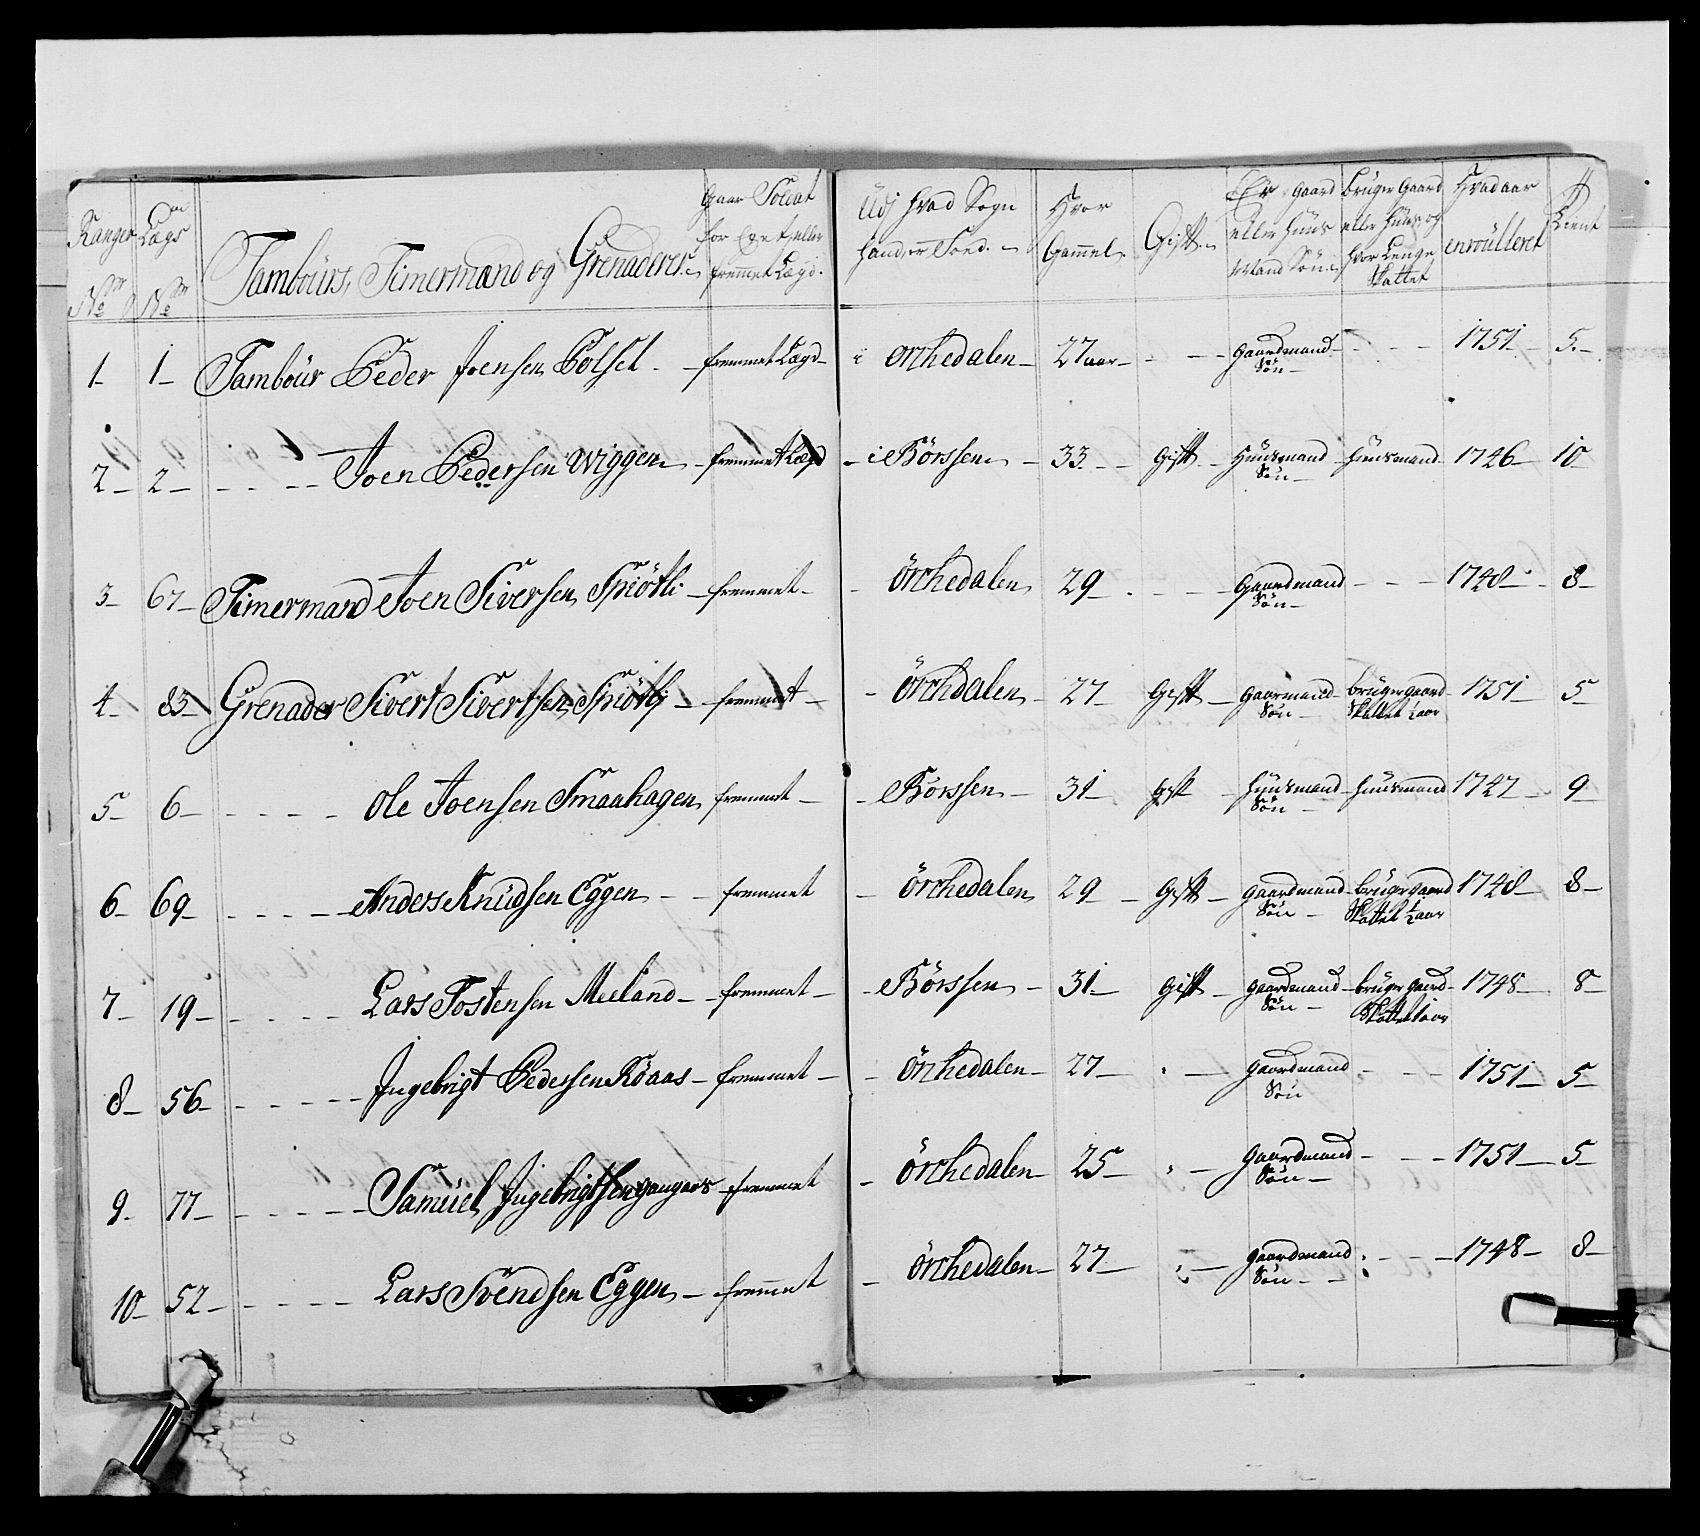 Ranger Nᵒ | Lægs Nᵒ | Tambours, Timermand og Grenaderer | Gaar Soldat for Eget eller fremmet Lægd. | Udj hvad Sogn hand er Føed. | Hvor Gammel | Gift | Er Gaard eller Huus Mand Søn | bruger Gaard eller Huus og hvor Lenge Skattet | Hvad aar enroulleret | Tient
1 1 Tambour Peder Joensen Solset fremmet Lægd i Orchedalen 27 aar - - gaardmand Søn - - - 1751 5
2 2 - - - Joen Pedersen Wiggen fremmet Lægd i Börssen 33 Gift Huusmand Søn Huusmand 1746 10
3 67 Timermand Joen Siversen Sniötli fremmet - Örchedalen 29 - - - Gaardmand Søn - - - 1748 8
4 83 Grenader Sivert Sivertsen Sniötli fremmet - Örchdalen 27 Gift Gaarmand Søn bruger gaard Skattet ½ aar 1751 5
5 6 - - - - Ole Joensen Smaahagen fremmet - Börssen 31 Gift Huusmand Søn Huusmand 1747 9
6 69 - - - - Anders Knudsen Eggen fremmet - Örchedalen 29 Gift gaardmand Søn bruger gaard Skattet ½ aar 1748 8
7 19 - - - - Lars Tostensen Meeland fremmet - Börssen 31 Gift gaardmand Søn bruger gaard Skattet 1 aar 1748 8
8 56 - - - - Ingebrigt Pedersen Röaas fremmet - Örchedalen 27 - - gaardmand Søn - - - 1751 5
9 77 - - - - Samuel Ingebrigtsen gangaas fremmet - Örchedalen 25 - - gaardmand Søn - - - 1751 5
10 52 - - - - Lars Svendsen Eggen fremmet - Örchedalen 27 - - gaardmand Søn - - - 1748 8